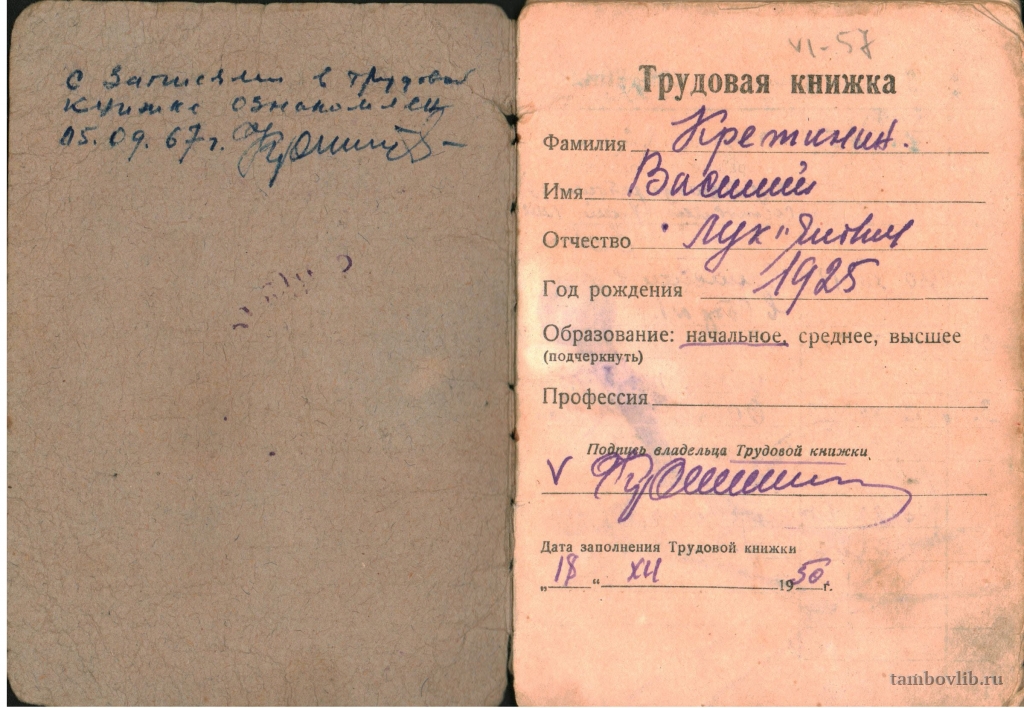 с записями в трудовой
книжке ознакомлен
15.09.67г.
VI-57
Трудовая книжка
Фамилия Кретинин.
Имя Василий
Отчество Лук"янович
Год рождения 1925
Образование: начальное, среднее, высшее
(подчеркнуть)
Профессия
Подпись владельца Трудовой книжки
V
Дата заполнения Трудовой книжки
„18“ XII 1950 г.
tambovlib.ru